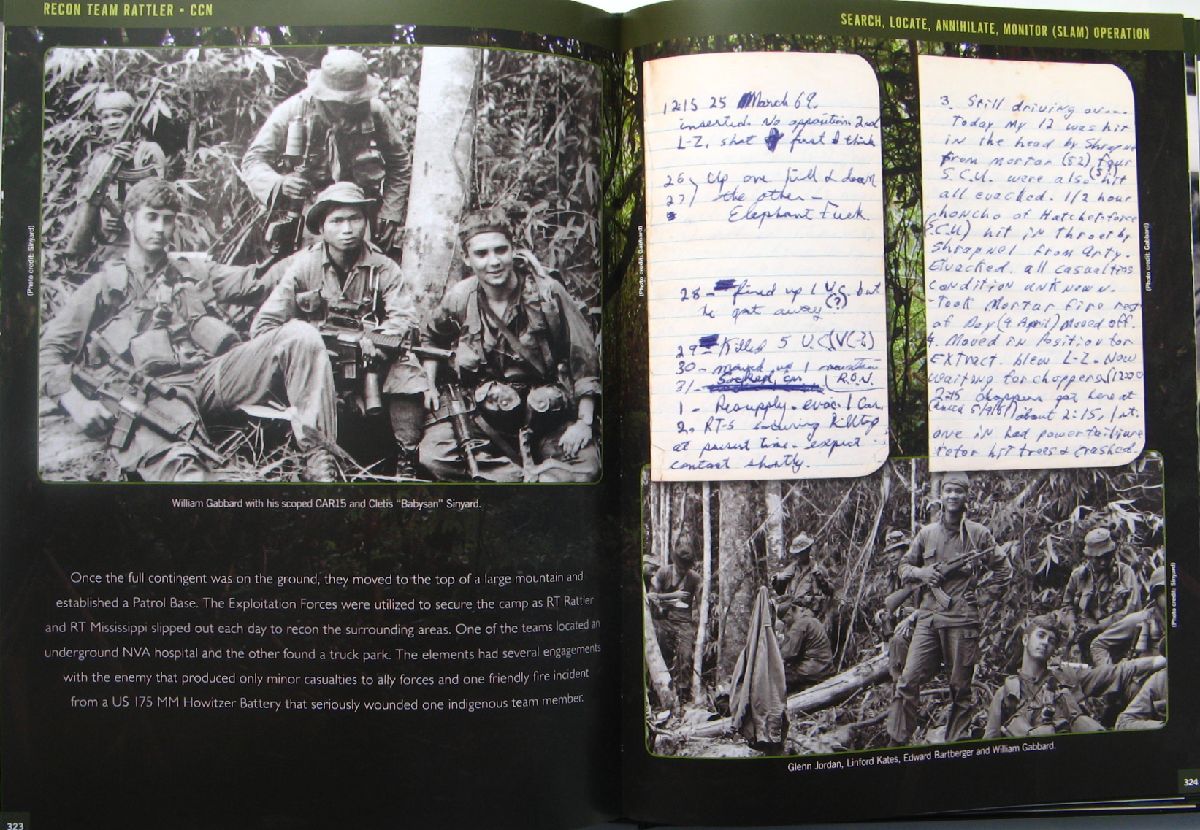 RECON TEAM RATTLER • CCN
(Photo credit: Sinyard)
William Gabbard with his scoped CAR15 and Cletis "Babysan" Sinyard.
Once the full contingent was on the ground, they moved to the top of a large mountain and
established a Patrol Base. The Exploitation Forces were utilized to secure the camp as RT Rattler
and RT Mississippi slipped out each day to recon the surrounding areas. One of the teams located an
underground NVA hospital and the other found a truck park. The elements had several engagements
with the enemy that produced only minor casualties to ally forces and one friendly fire incident
from a US 175 MM Howitzer Battery that seriously wounded one indigenous team member.
323
SEARCH, LOCATE, ANNIHILATE, MONITOR (SLAM) OPERATION
(Photo credit: Gabbard)
1215 25 March 69.
inserted No opposition 2nd
L-Z, shot first I think
26 Up one hill & down
27 the other -
Elephant Fuck
28 - fired up 1 V.C. but
he got away (?)
29 - Killed 5 V.C. (?)
30 - moved up 1 mountain
31 - Socked in (R.O.N.
1 - Resupply - evac. 1 Car.
2. RT-S securing hilltop
at present time - expect
contact shortly.
3. Still driving on...
Today my 12 was hit
in the head by Shrapnel
from mortar (82) four
S.C.U. were also hit
all evaced. 1/2 hour
honcho of Hatchetforce
(S.C.U.) hit in throat by
shrapnel from Arty.
Evacked. all casualties
condition unknown.
-Took Mortar fire rest
of Day (4 April) moved off.
4. Moved in Position for
extract. blew L-Z. Now
waiting for choppers (1200)
2:15 choppers got here at
about 2:15, 1st.
one in had power failure
rotor hit trees & crashed.
(Photo credit: Gabbard)
(Photo credit: Sinyard)
Glenn Jordan, Linford Kates, Edward Bartberger and William Gabbard.
324